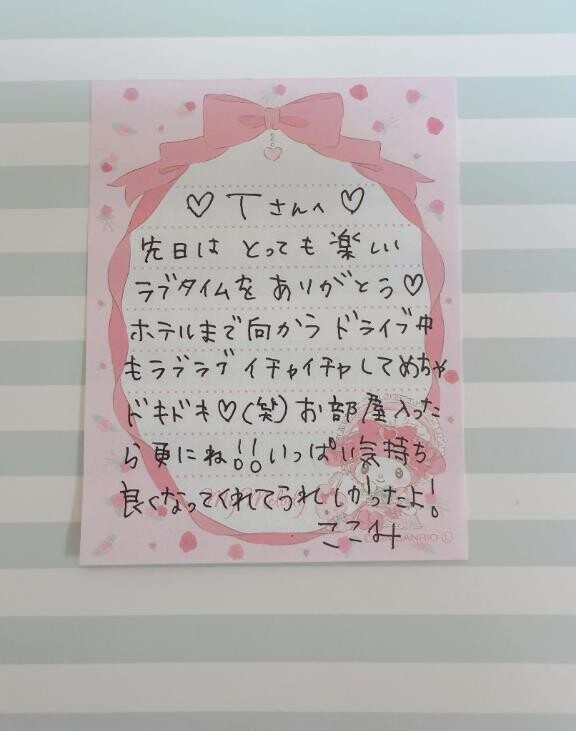 ♡ Tさんへ ♡
先日は とっても 楽しい
ラブタイムを ありがとう♡
ホテルまで向かう ドライブ中
もラブラブ イチャイチャしてめちゃ
ドキドキ♡(笑) お部屋入った
ら更にね!! いっぱい気持ち
良くなってくれてうれしかったよ!
ここみ
SANRIO Ⓛ